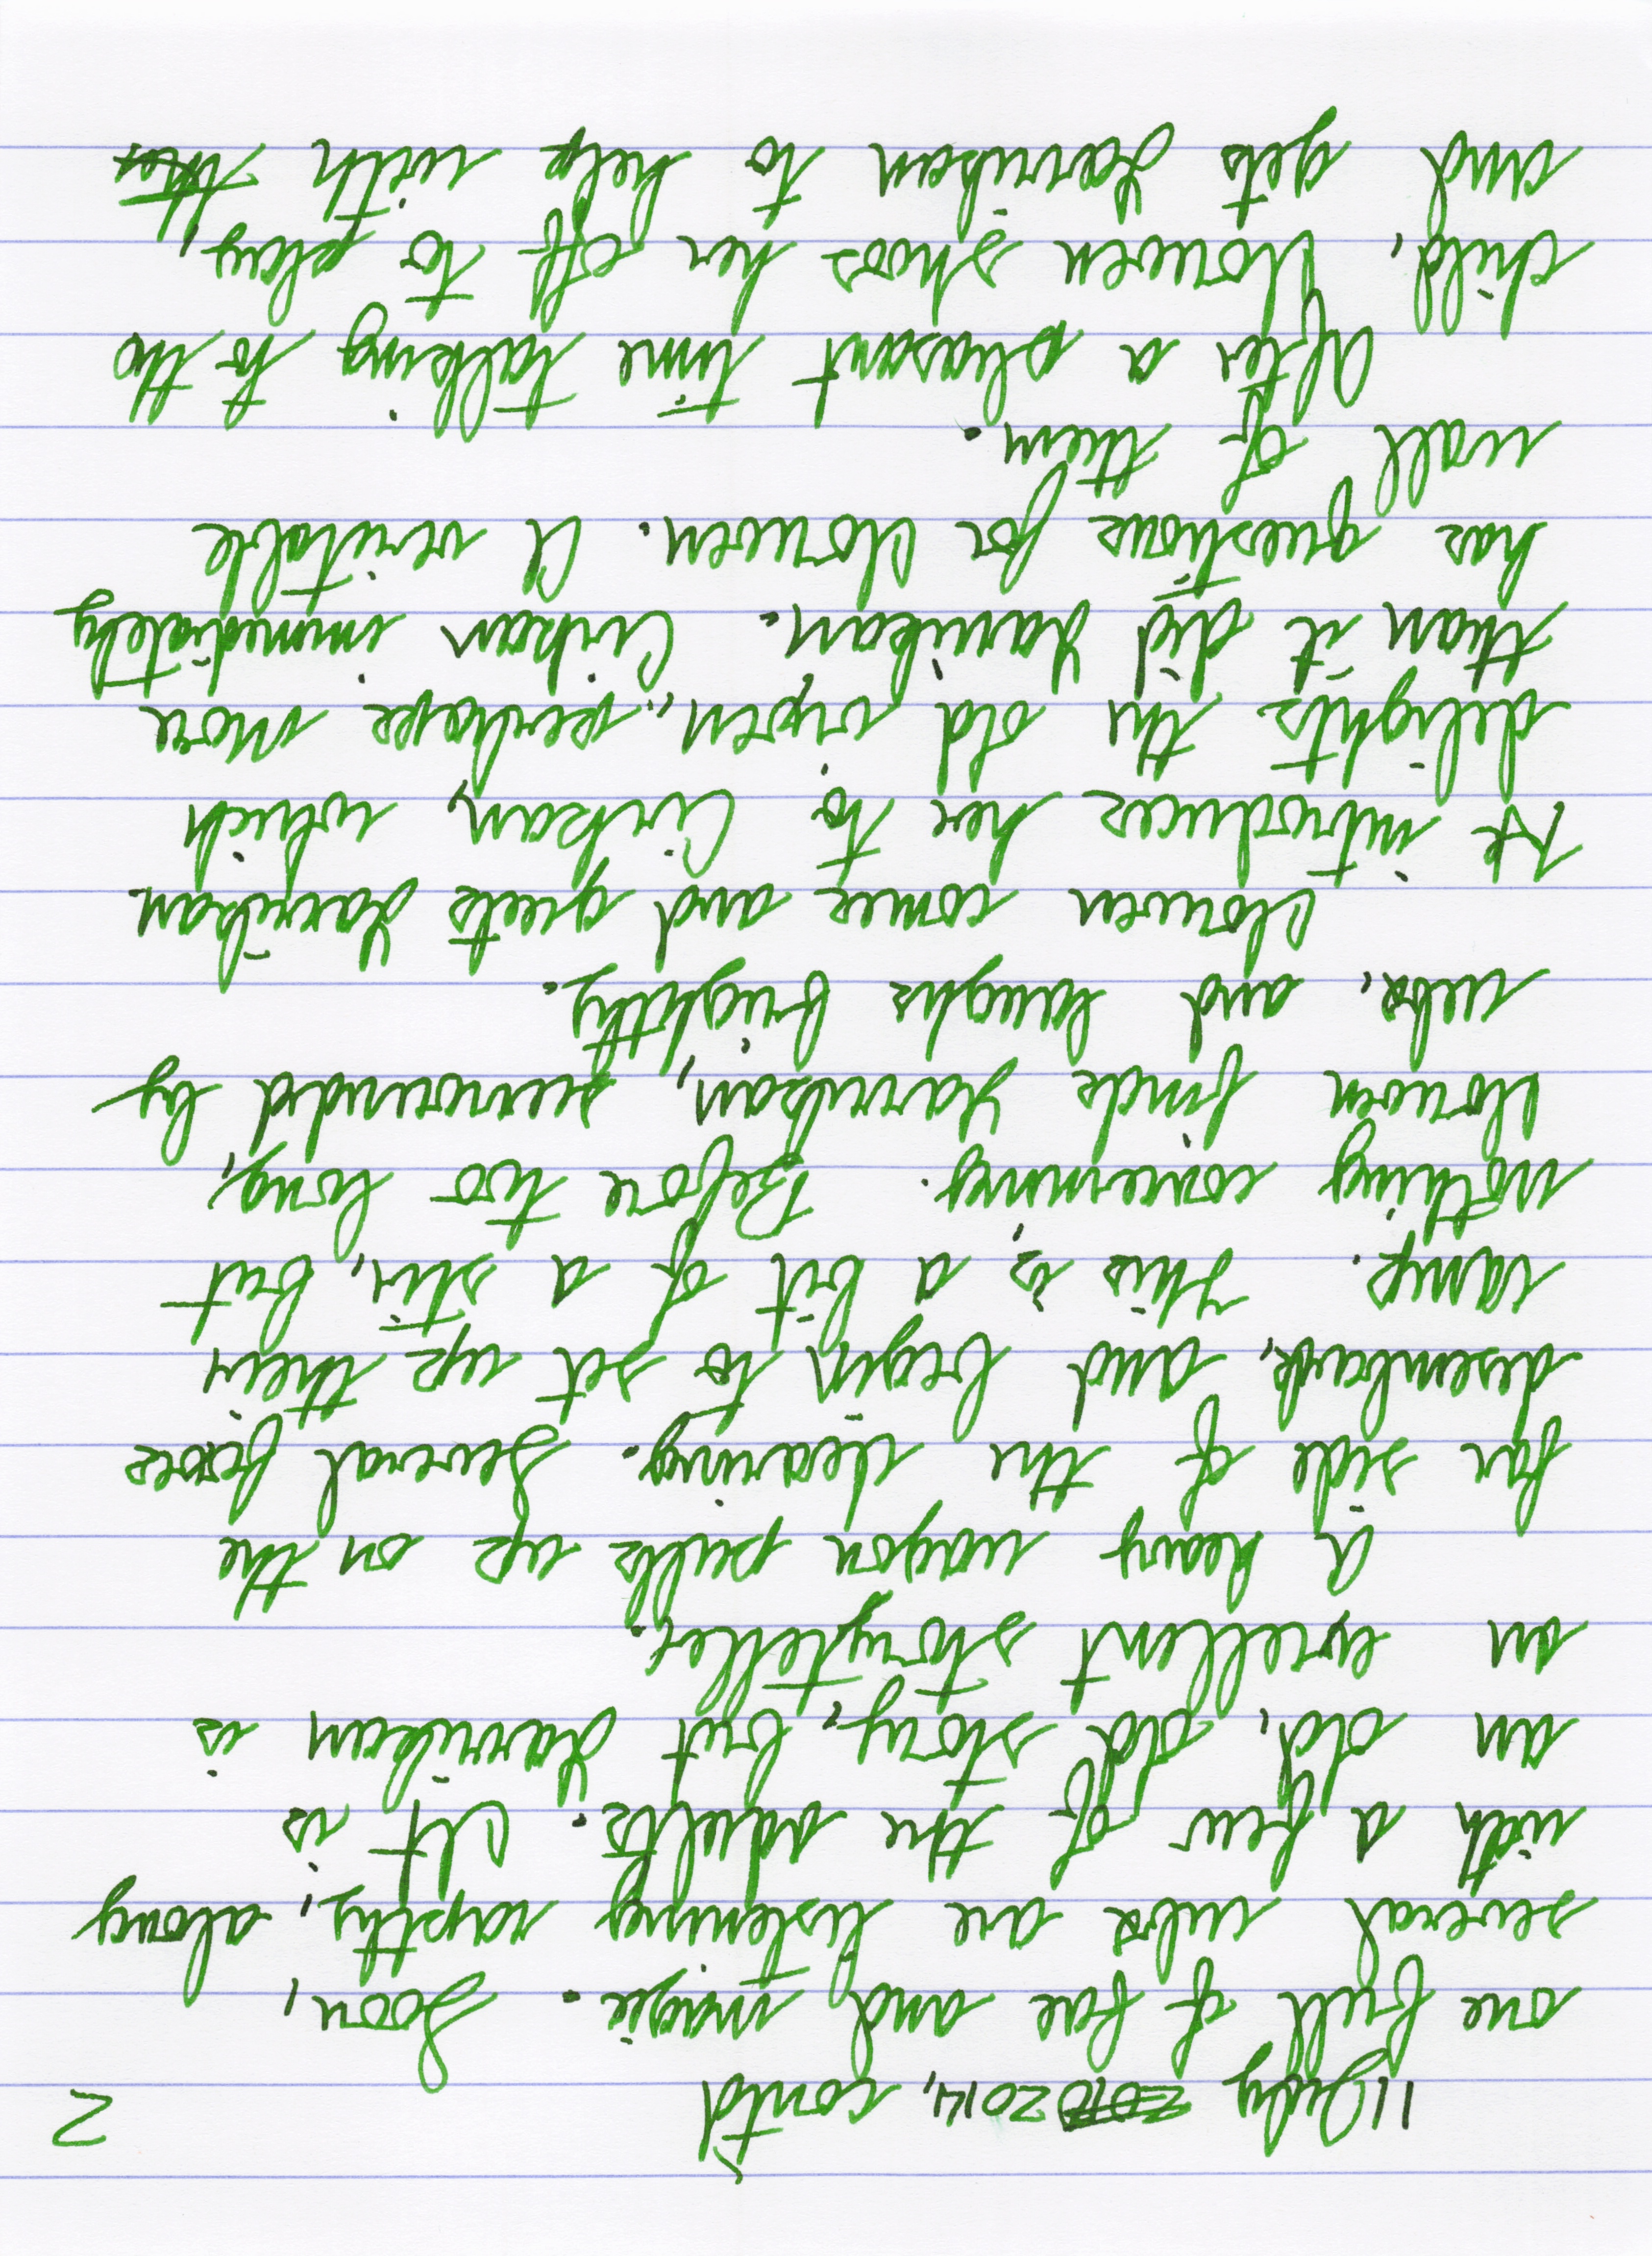 11 July 2014, cont'd 2
one full of fae and magic. Soon,
several cubs are listening raptly, along
with a few of the adults. It is
an old, old story, but Yarrikan is
an excellent storyteller.
A heavy wagon pulls up on the
far side of the clearing. Several foxes
disembark, and begin to set up their
camp. This is a bit of a stir, but
nothing concerning. Before too long,
finds Yarrikan, surrounded by
cubs, and laughs brightly.
comes and greets Yarrikan.
He introduces her to Cirkan, which
delights the old vixen, perhaps more
than it did Yarrikan. Cirkan immediately
has questions for A veritable
wall of them.
After a pleasant time talking to the
child, shoos her off to play,
and gets Yarrikan to help with